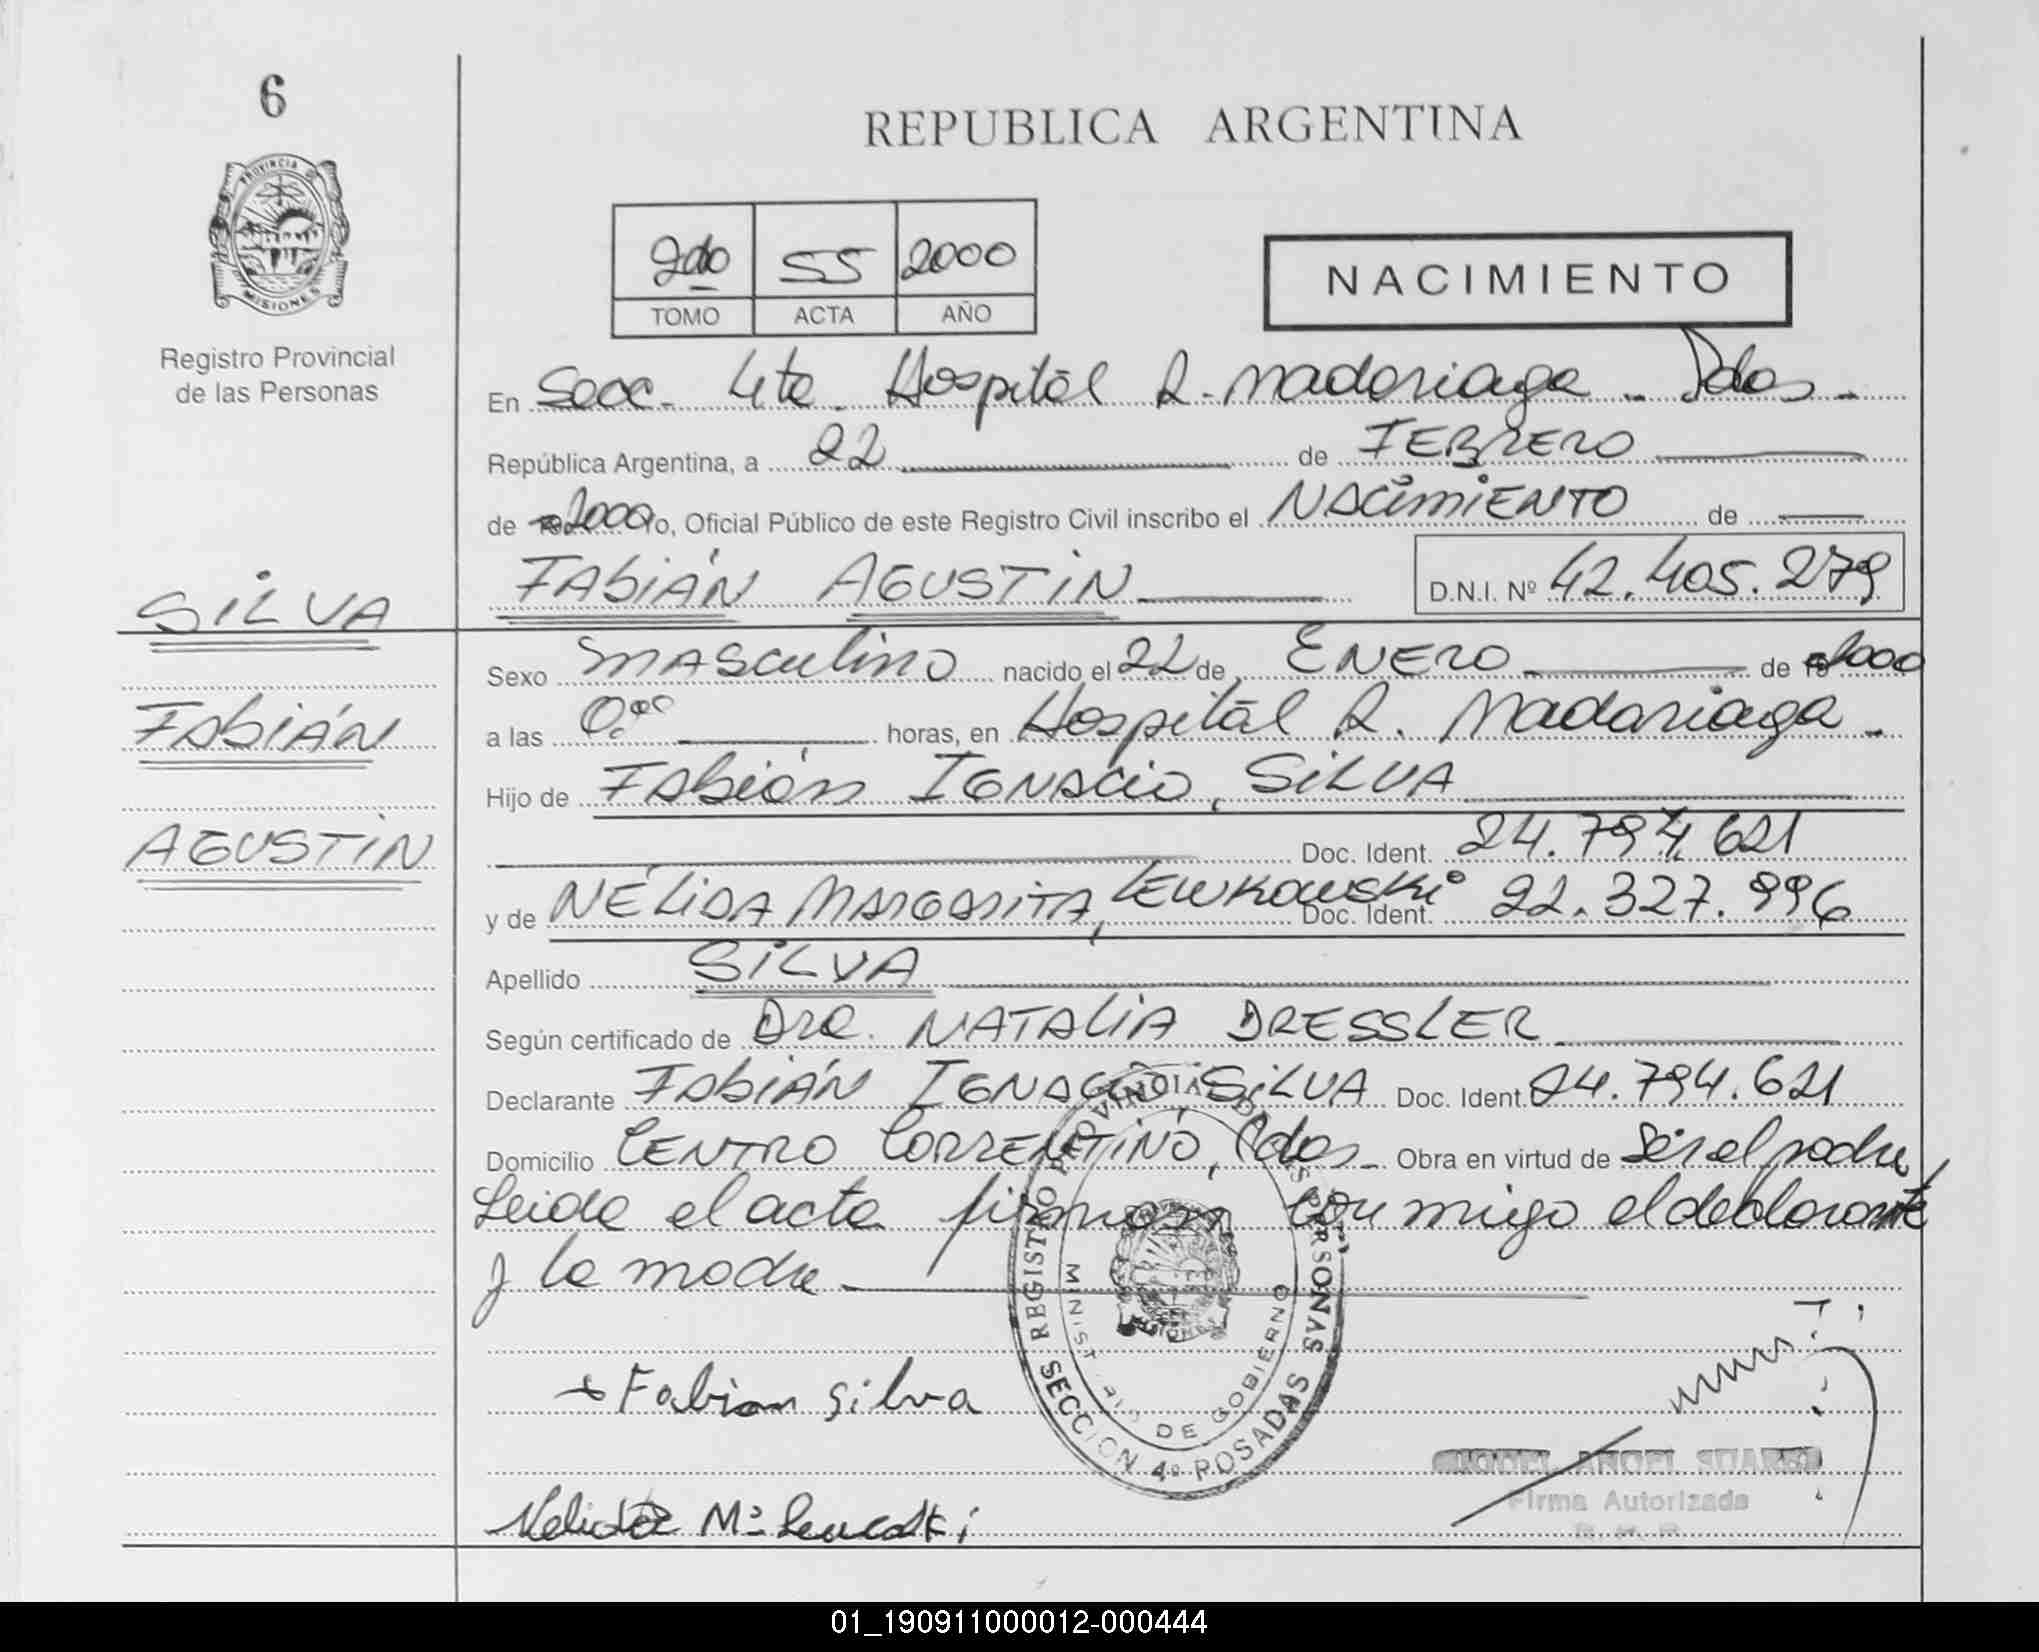 6
REPUBLICA ARGENTINA
PROVINCIA DE
MISIONES
Registro Provincial
de las Personas
2do 55 2000
TOMO ACTA AÑO
NACIMIENTO
En Secc. 4ta. Hospital R. Madariaga - Pdas -
República Argentina, a 22 de FEBRERO
de 2000 Yo, Oficial Público de este Registro Civil inscribo el NACIMIENTO de
FABIÁN AGUSTIN D.N.I. Nº 42.405.279
SILVA
FABIÁN
AGUSTIN
Sexo MASCULINO nacido el 22 de ENERO de 2000
a las 0.00 horas, en Hospital R. Madariaga -
Hijo de FABIÁN IGNACIO, SILVA
Doc. Ident. 24.794.621
y de NÉLIDA MARGARITA, LEWKOWSKI Doc. Ident. 22.327.996
Apellido SILVA
Según certificado de Dra. NATALIA DRESSLER
Declarante FABIÁN IGNACIO SILVA Doc. Ident. 24.794.621
Domicilio CENTRO CORRENTINO, Pdas - Obra en virtud de Ser el padre,
Leida el acta firman con migo el declarante
y la madre
REGISTRO PROVINCIAL DE LAS PERSONAS
MINISTERIO DE GOBIERNO
SECCION 4º POSADAS
+ Fabian Silva
MIGUEL ANGEL SUAREZ
Firma Autorizada
Nelida Mª
01_190911000012-000444